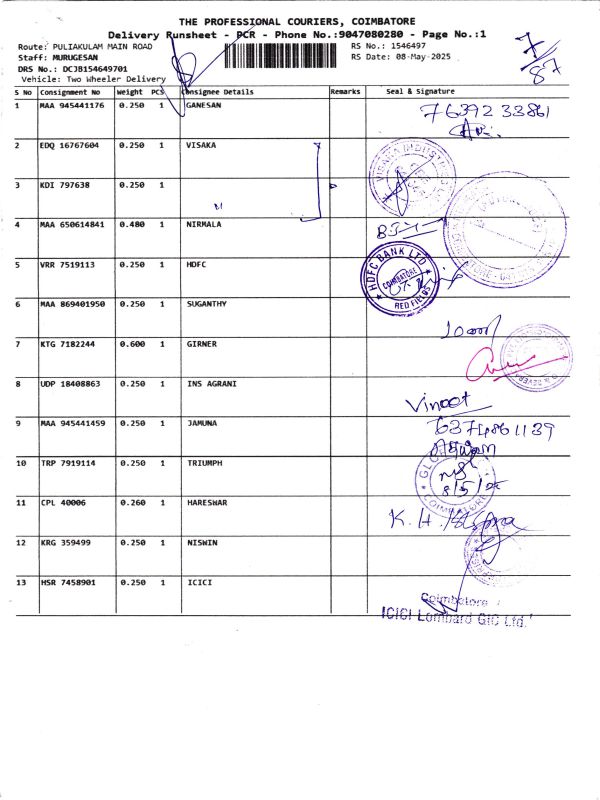 THE PROFESSIONAL COURIERS, COIMBATORE
Delivery Runsheet - PCR - Phone No.:9047080280 - Page No.:1
Route: PULIAKULAM MAIN ROAD RS No.: 1546497
Staff: MURUGESAN RS Date: 08-May-2025
DRS No.: DCJB154649701
Vehicle: Two Wheeler Delivery
7/87
S No Consignment No Weight PCS Consignee Details Remarks Seal & Signature
1 MAA 945441176 0.250 1 GANESAN 7639233861
2 EDQ 16767604 0.250 1 VISAKA
3 KDI 797638 0.250 1
4 MAA 650614841 0.480 1 NIRMALA
5 VRR 7519113 0.250 1 HDFC HDFC BANK LTD COIMBATORE RED FIELDS
6 MAA 869401950 0.250 1 SUGANTHY
7 KTG 7182244 0.600 1 GIRNER
8 UDP 18408863 0.250 1 INS AGRANI Vineet
9 MAA 945441459 0.250 1 JAMUNA 6374861139
10 TRP 7919114 0.250 1 TRIUMPH 8/5/25 COIMBATORE
11 CPL 40006 0.260 1 HARESWAR K.H.
12 KRG 359499 0.250 1 NISWIN
13 HSR 7458901 0.250 1 ICICI Coimbatore
ICICI Lombard GIC Ltd.